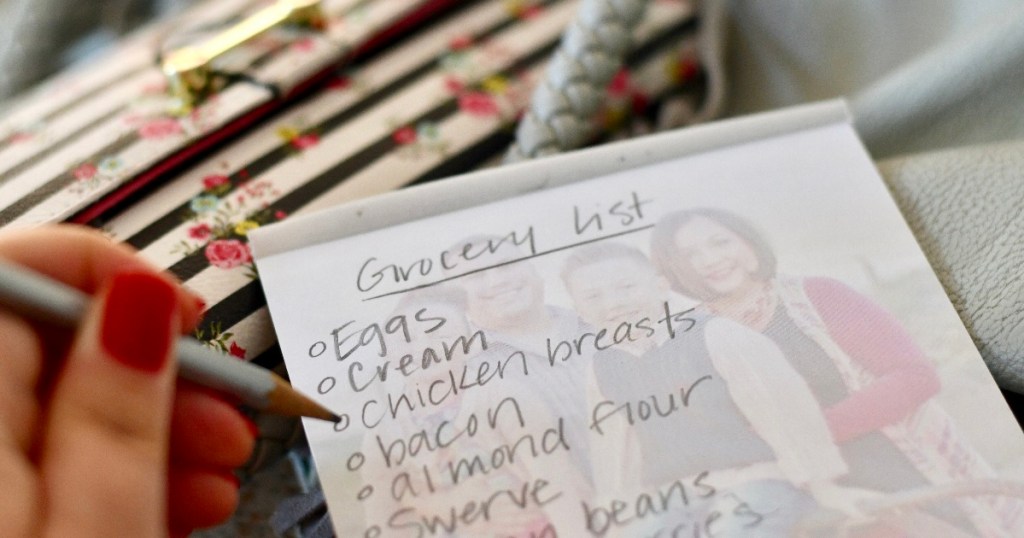 Grocery list
Eggs
Cream
Chicken breasts
bacon
almond flour
Swerve
beans